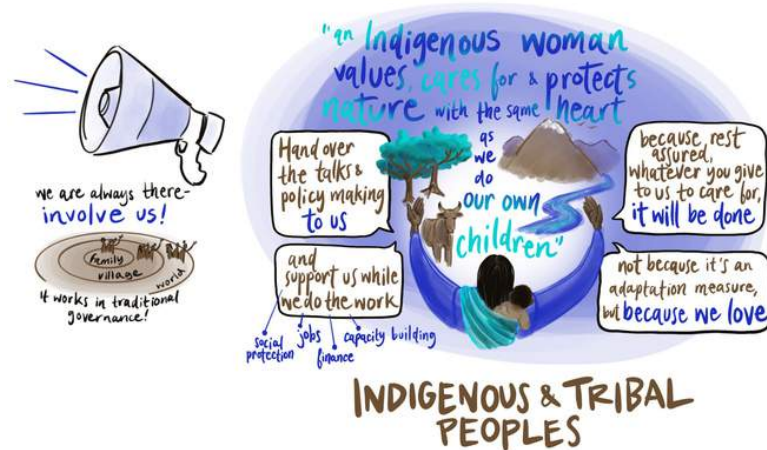 we are always there-
involve us!
family
village
world
it works in traditional
governance!
"an Indigenous woman
values, cares for & protects
nature with the same heart
as
we
do
our own
children"
Hand over
the talks &
policy making
to us
and
support us while
we do the work
social
protection
jobs
finance
capacity building
because, rest
assured,
whatever you give
to us to care for,
it will be done
not because it's an
adaptation measure,
but because we love
INDIGENOUS & TRIBAL
PEOPLES